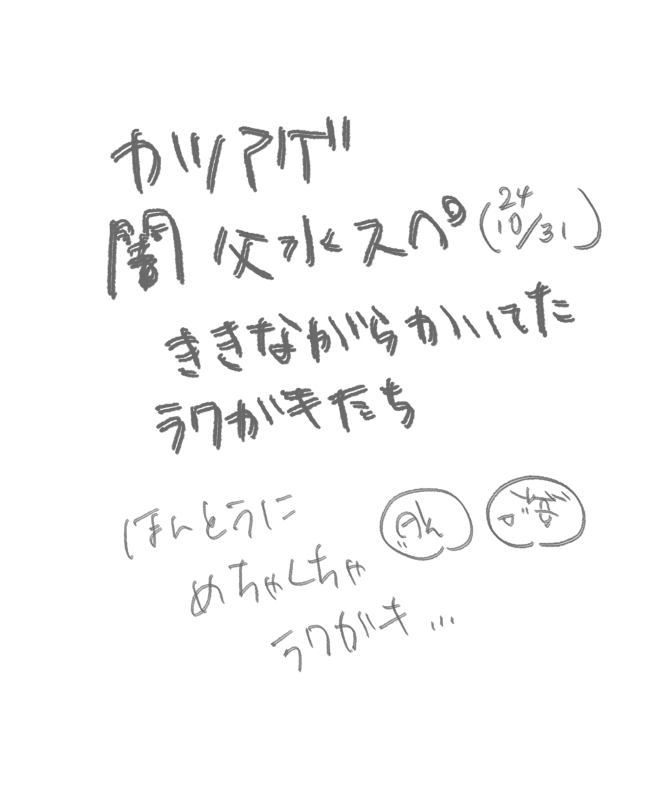 カツアゲ
闇 父水スペ(24 10/31)
ききながらかいてた
ラクガキたち
ほんとうに
めちゃくちゃ
ラクガキ...